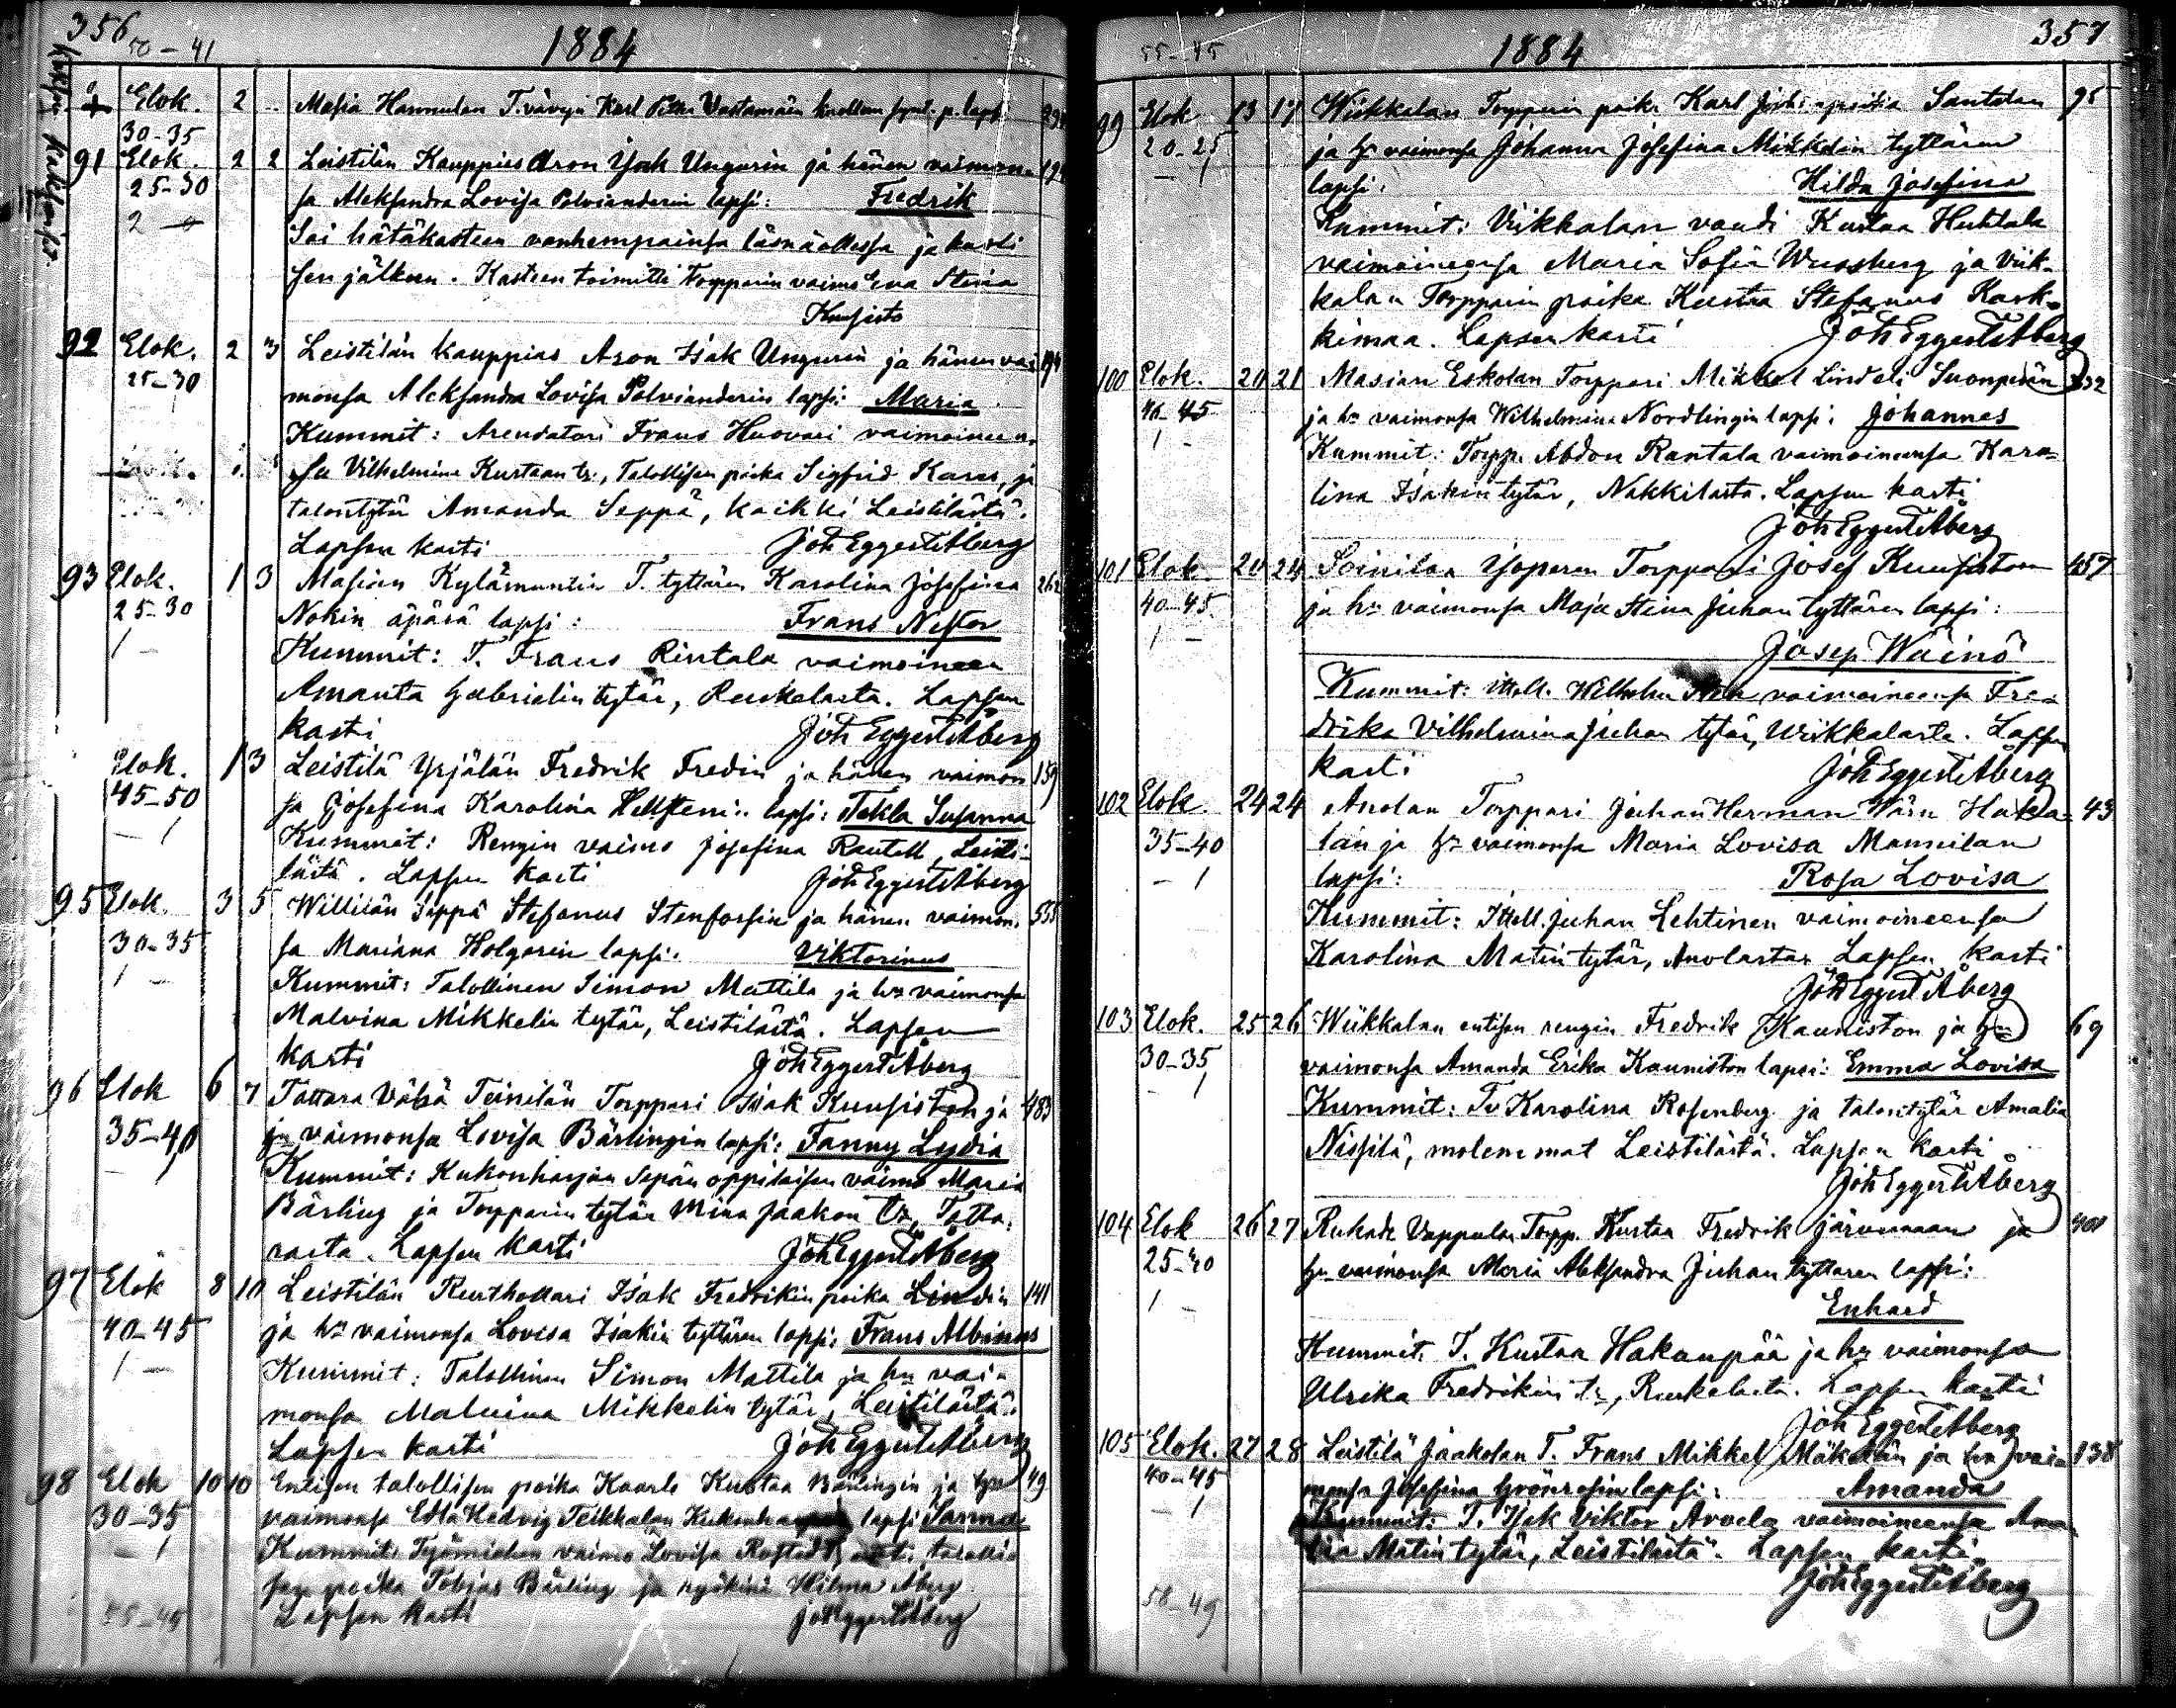 356
50-41
1884
Elok. 2 Masia Hannulan T. vävyn Karl
30-35
91 Elok. 2 2 Leistilän Kauppias Aron Isak Ungurin ja hänen vaimon-
25-30 sa Aleksandra Lovisa Polvianderin lapsi: Fredrik
2 Sai hätäkasteen vanhempainsa läsnäollessa ja kuoli
sen jälkeen. Kasteen toimitti torpparin vaimo Eva Stina
Kuusisto
92 Elok. 2 3 Leistilän Kauppias Aron Isak Ungurin ja hänen vai-
25-30 monsa Aleksandra Lovisa Polvianderin lapsi: Maria
Kummit: Arendatori Frans Huovari vaimoineen-
sa Vilhelmina Kustaan tr., Talollisen poika Sigfrid Karas, ja
talontytär Amanda Seppä, kaikki Leistilästä.
Lapsen kasti Joh Eggert Åberg
93 Elok. 1 3 Masian Kylämuntin T. tyttären Karolina Josefina 262
25-30 Nokin äpärä lapsi: Frans Nestor
1 - Kummit: T. Frans Rintala vaimoineen
Amanta Gabrielin tytär, Ruskelasta. Lapsen
kasti Joh Eggert Åberg
Elok. 1 3 Leistilä Yrjälän Fredrik Fredin ja hänen vaimon 159
45-50 sa Josefina Karolina lapsi: Tekla Susanna
- 1 Kummit: Rengin vaimo Josefina Rantell, Leisti-
lästä. Lapsen kasti Joh Eggert Åberg
95 Elok. 3 5 Willilän Seppä Stefanus Stenforsin ja hänen vaimon- 555
30-35 sa Mariana Holgerin lapsi: Viktorinus
1 - Kummit: Talollinen Simon Mattila ja hn vaimonsa
Malvina Mikkelin tytär, Leistilästä. Lapsen
kasti Joh Eggert Åberg
96 Elok 6 7 Tattara Vähä Teinilän Torppari Isak Kuusiston ja 483
35-40 hn vaimonsa Lovisa Bärlingin lapsi: Fanny Lydia
- 1 Kummit: Kukonharjan Sepän oppilaisen vaimo Maria
Bärling ja Torpparin tytär Mina Jaakon tr, Tatta-
rasta. Lapsen kasti Joh Eggert Åberg
97 Elok 8 10 Leistilän Rusthollari Isak Fredrikin poika Lindin 141
40-45 ja hn vaimonsa Lovisa Isakin tyttären lapsi: Frans Albinus
1 - Kummit: Talollinen Simon Mattila ja hn vai-
monsa Malviina Mikkelin tytär, Leistilästä.
Lapsen kasti Joh Eggert Åberg
98 Elok 10 10 Entisen talollisen poika Kaarle Kustaa Bärlingin ja hn 49
30-35 vaimonsa Edla Hedvig Teikkalan lapsi Sanna
- 1 Kummit: Työmiehen vaimo Lovisa talolli-
sen poika Tobias Bärling ja Hilma Åberg
Lapsen kasti Joh Eggert Åberg
357
55-45
1884
99 Elok 13 17 Wiikkalan Torpparin poika Karl Santalan 95
20-25 ja hn vaimonsa Johanna Josefina Mikkelin tyttären
- 1 lapsi: Hilda Josefina
Kummit: Viikkalan voudi Kustaa Huhtala
vaimoineensa Maria Sofia ja Viik-
kalan Torpparin poika Kustaa Stefanus Kark-
kimaa. Lapsen kasti Joh Eggert Åberg
100 Elok. 20 21 Masian Eskolan Torppari Mikkel Lindeli Suonpään 232
ja hn vaimonsa Wilhelmina Nordlingin lapsi: Johannes
1 - Kummit: Torpp. Abdon Rantala vaimoineensa Karo-
lina Isakin tytär, Nakkilasta. Lapsen kasti
Joh Eggert Åberg
101 Elok. 20 24 Soinilan Torppari Josef Kuusiston 457
40-45 ja hn vaimonsa Maja Stina Juhan tyttären lapsi:
1 - Josep Wäinö
Kummit: Itsell. Wilhelm vaimoineensa Fre-
drika Vilhelmina Juhan tytär, Wiikkalasta. Lapsen
kasti Joh Eggert Åberg
102 Elok. 24 24 Anolan Torppari Juhan Herman 43
35-40 län ja hn vaimonsa Maria Lovisa Mannilan
- 1 lapsi: Rosa Lovisa
Kummit: Itsell. Juhan Lehtinen vaimoineensa
Karolina Matin tytär, Anolasta. Lapsen kasti
Joh Eggert Åberg
103 Elok. 25 26 Wiikkalan entisen rengin Fredrik Kauniston ja hn 69
30-35 vaimonsa Amanda Erika Kauniston lapsi: Emma Lovisa
- 1 Kummit: Tr Karolina Rosenberg ja talontytär Amalia
Nissilä, molemmat Leistilästä. Lapsen kasti
Joh Eggert Åberg
104 Elok 26 27 Vappulan Torpp. Kustaa Fredrik Järvimaan ja
hn vaimonsa Maria Aleksandra Juhan tyttären lapsi:
1 - Enhard
Kummit: T. Kustaa Hakanpää ja hn vaimonsa
Ulrika Fredrikin tr, Ruskelasta. Lapsen kasti
Joh Eggert Åberg
105 Elok. 27 28 Leistilä Jaakolan T. Frans Mikkel Mäkelän ja hn vai- 138
40-45 monsa Josefina Grönroosin lapsi: Amanda
- 1 Kummit: T. Isak Viktor Arvela vaimoineensa Ama-
lia Matin tytär, Leistilästä. Lapsen kasti
Joh Eggert Åberg
58-49